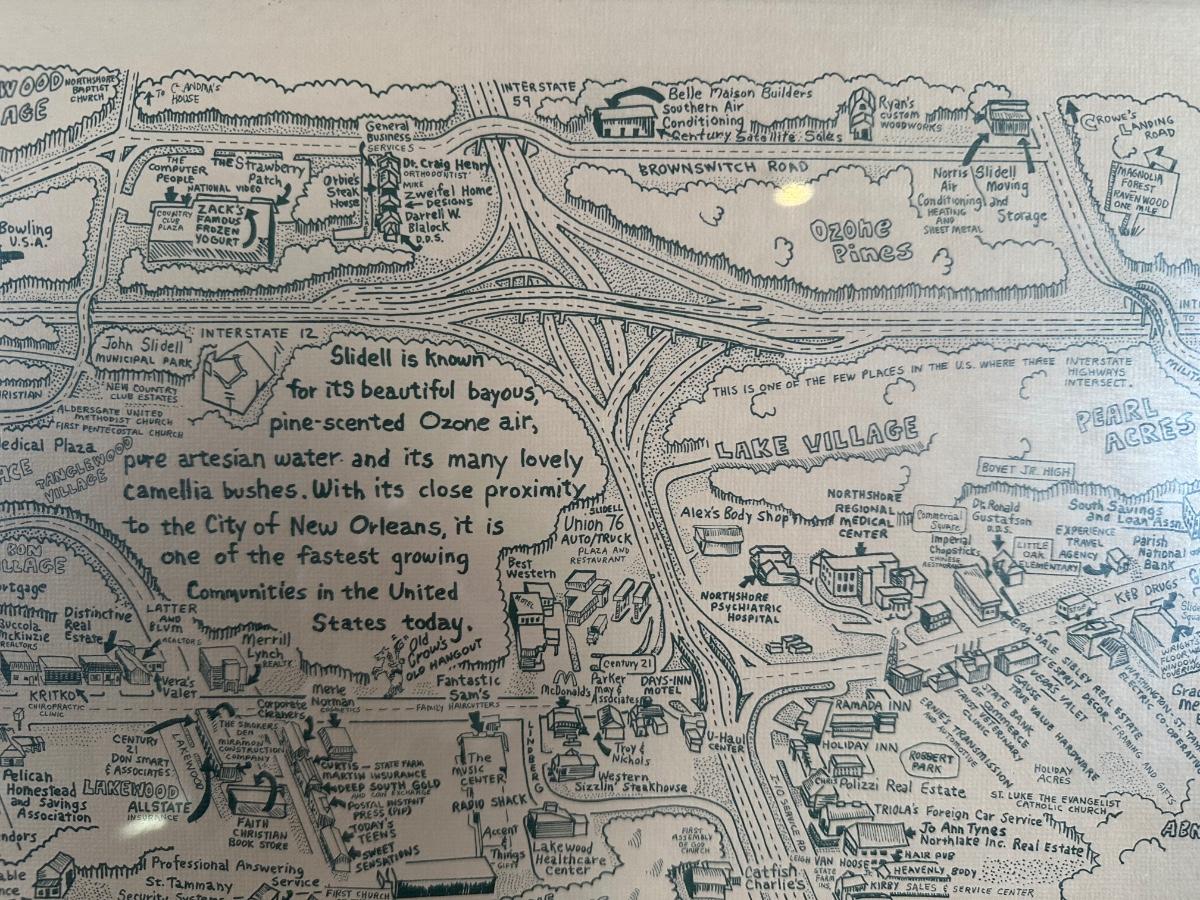 WOOD
AGE
NORTHSHORE
BAPTIST
CHURCH
TO
HOUSE
INTERSTATE
59
Belle Maison Builders
Southern Air
Conditioning
Century Satellite Sales
Ryan's
CUSTOM
WOODWORKS
CROWE'S
LANDING
ROAD
MAGNOLIA
FOREST
RAVENWOOD
ONE MILE
General
Business
SERVICES
THE
COMPUTER
PEOPLE
THE Strawberry
Patch
NATIONAL VIDEO
COUNTRY
CLUB
PLAZA
ZACK'S
FAMOUS
FROZEN
YOGURT
Orbie's
Steak
House
Dr. Craig Henry
ORTHODONTIST
MIKE
Zweifel Home
DESIGNS
Darrell W.
Blalock
D.D.S.
BROWNSWITCH ROAD
Norris
Air
Conditioning
HEATING
AND
SHEET METAL
Slidell
Moving
and
Storage
Ozone
Pines
Bowling
U.S.A.
INTERSTATE 12
John Slidell
MUNICIPAL PARK
NEW COUNTRY
CLUB ESTATES
ALDERSGATE UNITED
METHODIST CHURCH
FIRST PENTECOSTAL CHURCH
RISTIAN
Medical Plaza
ACE
TANGLEWOOD
VILLAGE
Slidell is known
for its beautiful bayous,
pine-scented Ozone air,
pure artesian water and its many lovely
camellia bushes. With its close proximity
to the City of New Orleans, it is
one of the fastest growing
Communities in the United
States today.
THIS IS ONE OF THE FEW PLACES IN THE U.S. WHERE THREE INTERSTATE
HIGHWAYS
INTERSECT.
INT
TO
MILIT
LAKE VILLAGE
PEARL
ACRES
BOYET JR. HIGH
Alex's Body Shop
NORTHSHORE
REGIONAL
MEDICAL
CENTER
Commercial
Square
Imperial
Chopsticks
CHINESE
RESTAURANT
Dr. Ronald
Gustafson
D.D.S.
LITTLE
OAK
ELEMENTARY
South Savings
and Loan Assn.
EXPERIENCE
TRAVEL
AGENCY
Parish
National
Bank
K&B DRUGS
NORTHSHORE
PSYCHIATRIC
HOSPITAL
SLIDELL
Union 76
AUTO/TRUCK
PLAZA AND
RESTAURANT
Best
Western
MOTEL
BON
VILLAGE
ortgage
Buccola
McKinzie
REALTORS
Distinctive
Real
Estate
LATTER
AND
BLUM
REALTORS
Merrill
Lynch
REALTY
Vera's
Valet
KRITKO
CHIROPRACTIC
CLINIC
Old
Crow's
OLD HANGOUT
Fantastic
Sam's
FAMILY HAIRCUTTERS
Corporate
Cleaners
Merle
Norman
COSMETICS
Century 21
McDonald's
Parker
May &
Associates
DAYS-INN
MOTEL
Troy &
Nichols
U-Haul
CENTER
Western
Sizzlin' Steakhouse
LINDBERG
THE SMOKERS
DEN
MIRAMON
CONSTRUCTION
COMPANY
CENTURY
21
DON SMART
& ASSOCIATES
LAKEWOOD
LAKEWOOD
ALLSTATE
INSURANCE
Pelican
Homestead
and Savings
Association
FAITH
CHRISTIAN
BOOK STORE
CURTIS - STATE FARM
MARTIN INSURANCE
DEEP SOUTH GOLD
AND COIN EXCHANGE
POSTAL INSTANT
PRESS (PIP)
TODAY'S
TEENS
SWEET
SENSATIONS
The
MUSIC
CENTER
RADIO SHACK
Accent
&
Things
GIFTS
Lakewood
Healthcare
Center
FIRST
ASSEMBLY
OF GOD
CHURCH
Catfish
Charlie's
I-10 SERVICE RD.
RAMADA INN
HOLIDAY INN
ROBERT
PARK
CHRIS
Polizzi Real Estate
TRIOLA'S Foreign Car Service
Jo Ann Tynes
Northlake Inc. Real Estate
LEIGH VAN HOUSE
STATE
FARM
INS.
HAIR PUB
HEAVENLY BODY
KIRBY SALES & SERVICE CENTER
ERNIE'S TRANSMISSION
AND AUTOMOTIVE
POST VETERINARY
CLINIC
STATE BANK
OF COMMERCE
GAUSE
TRUE VALUE HARDWARE
EUGENE'S VALET
L'ESPRIT DECOR, FRAMING AND GIFTS
ERA-DALE SIBLEY REAL ESTATE
HOLIDAY
ACRES
ST. LUKE THE EVANGELIST
CATHOLIC CHURCH
WASHINGTON-ST. TAMMANY
ELECTRIC CO-OPERATIVE
WRIGHT
FLOOR
WINDOW
COVERING
Professional Answering
Service
St. Tammany
Security Systems
FIRST CHURCH